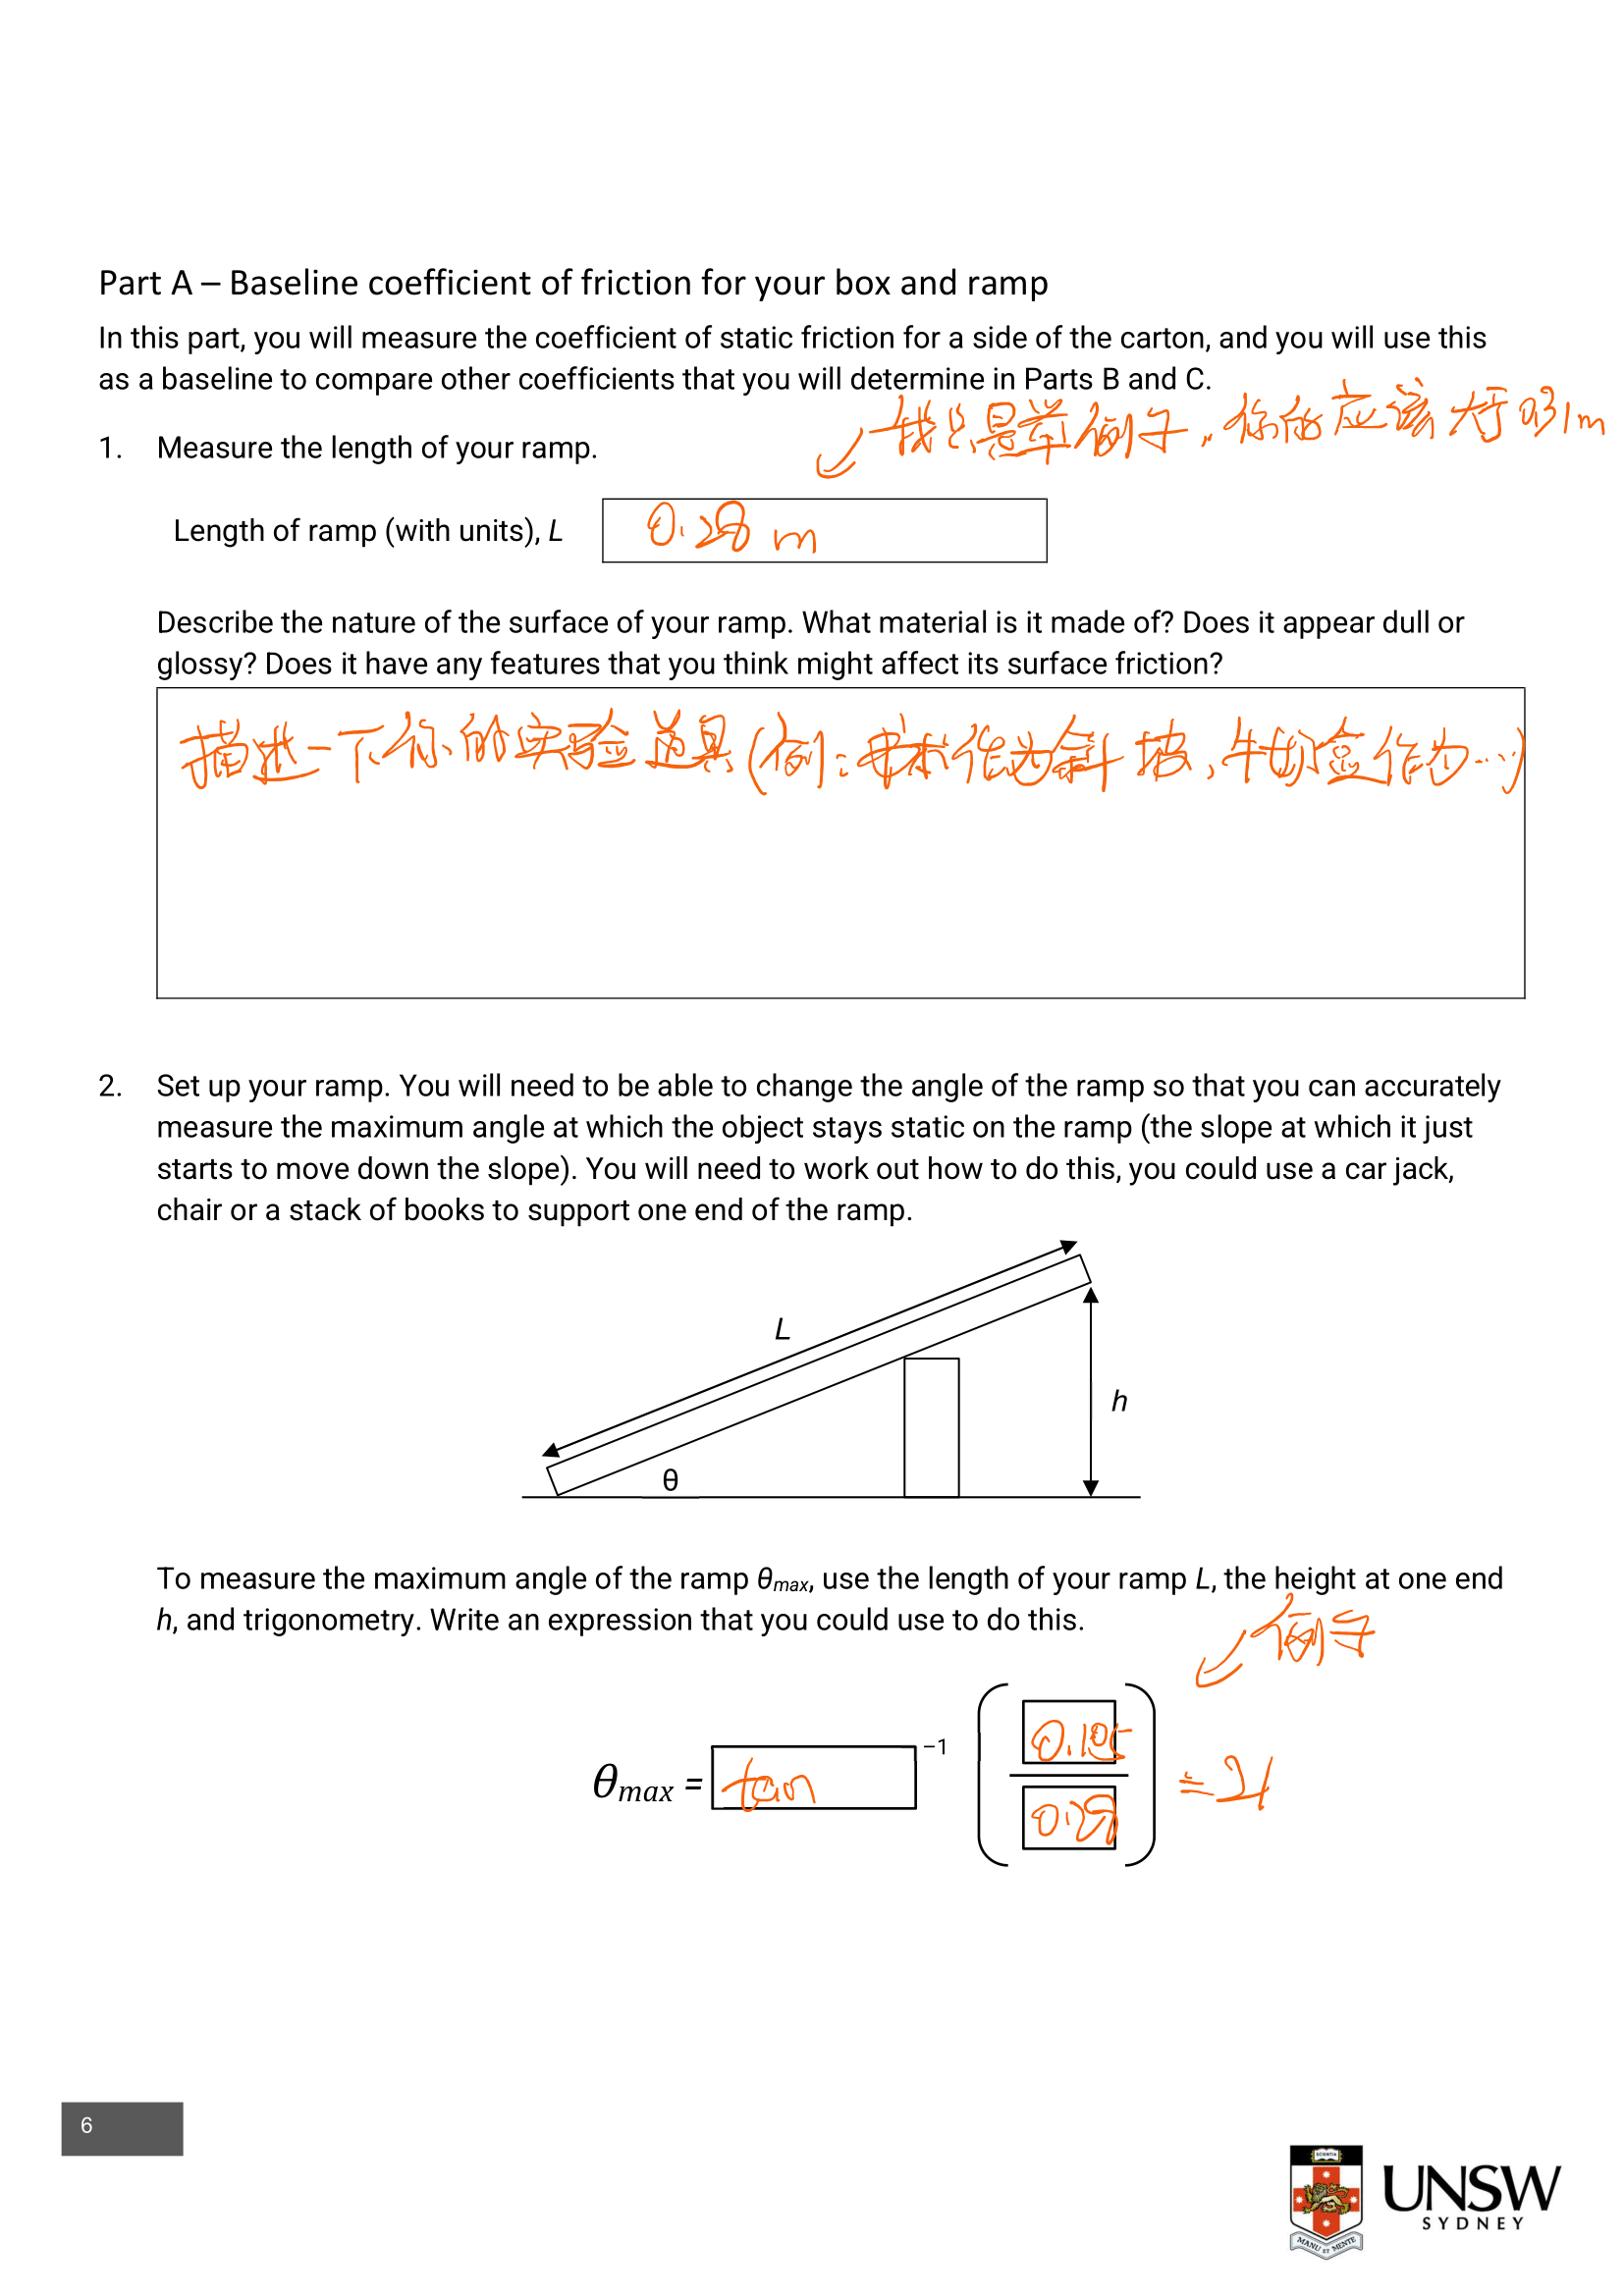 Part A – Baseline coefficient of friction for your box and ramp
In this part, you will measure the coefficient of static friction for a side of the carton, and you will use this
as a baseline to compare other coefficients that you will determine in Parts B and C.
我只是举例子，你的应该大于0.31m
1. Measure the length of your ramp.
Length of ramp (with units), L 0.28 m
Describe the nature of the surface of your ramp. What material is it made of? Does it appear dull or
glossy? Does it have any features that you think might affect its surface friction?
描述一下你的实验道具(例:书本作为斜坡,牛奶盒作为...)
2. Set up your ramp. You will need to be able to change the angle of the ramp so that you can accurately
measure the maximum angle at which the object stays static on the ramp (the slope at which it just
starts to move down the slope). You will need to work out how to do this, you could use a car jack,
chair or a stack of books to support one end of the ramp.
L
h
θ
To measure the maximum angle of the ramp θmax, use the length of your ramp L, the height at one end
h, and trigonometry. Write an expression that you could use to do this.
例子
θmax = tan –1 (0.105 / 0.28) = 21
6
SCIENTIA
MANU ET MENTE
UNSW
SYDNEY